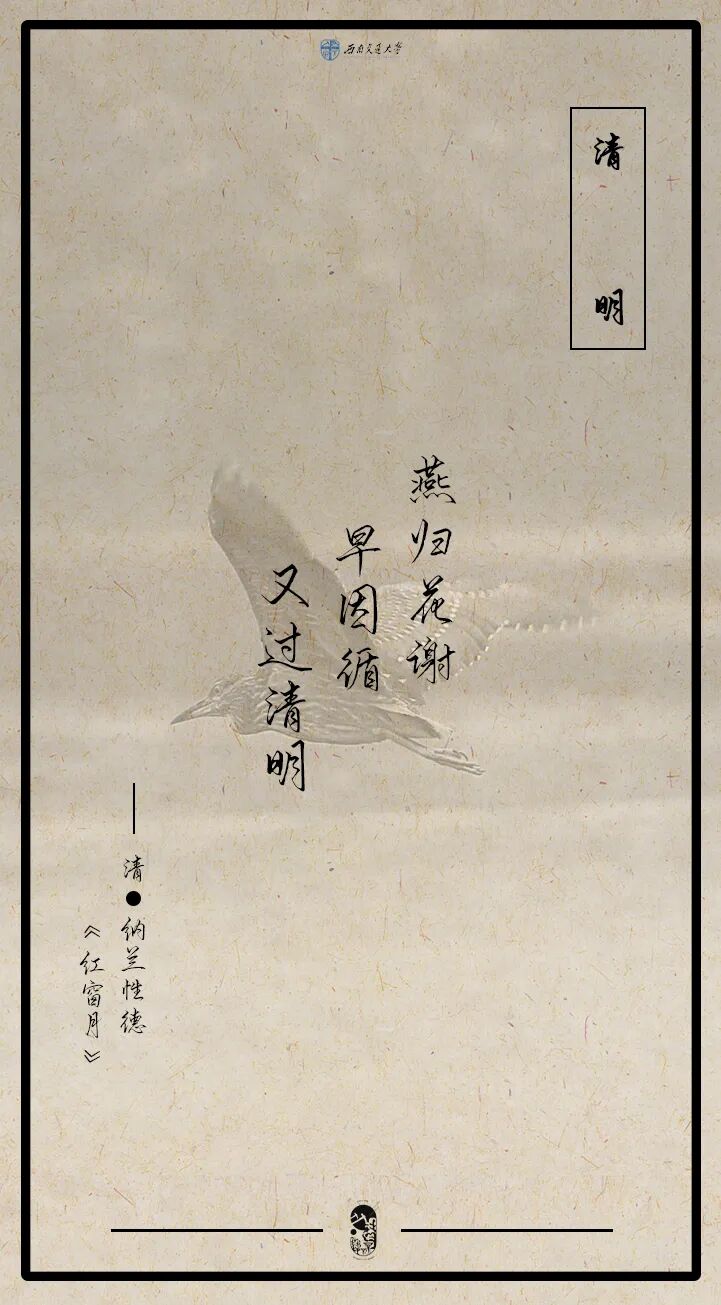 西南交通大学
清明
燕归花谢
早因循
又过清明
清●纳兰性德
《红窗月》